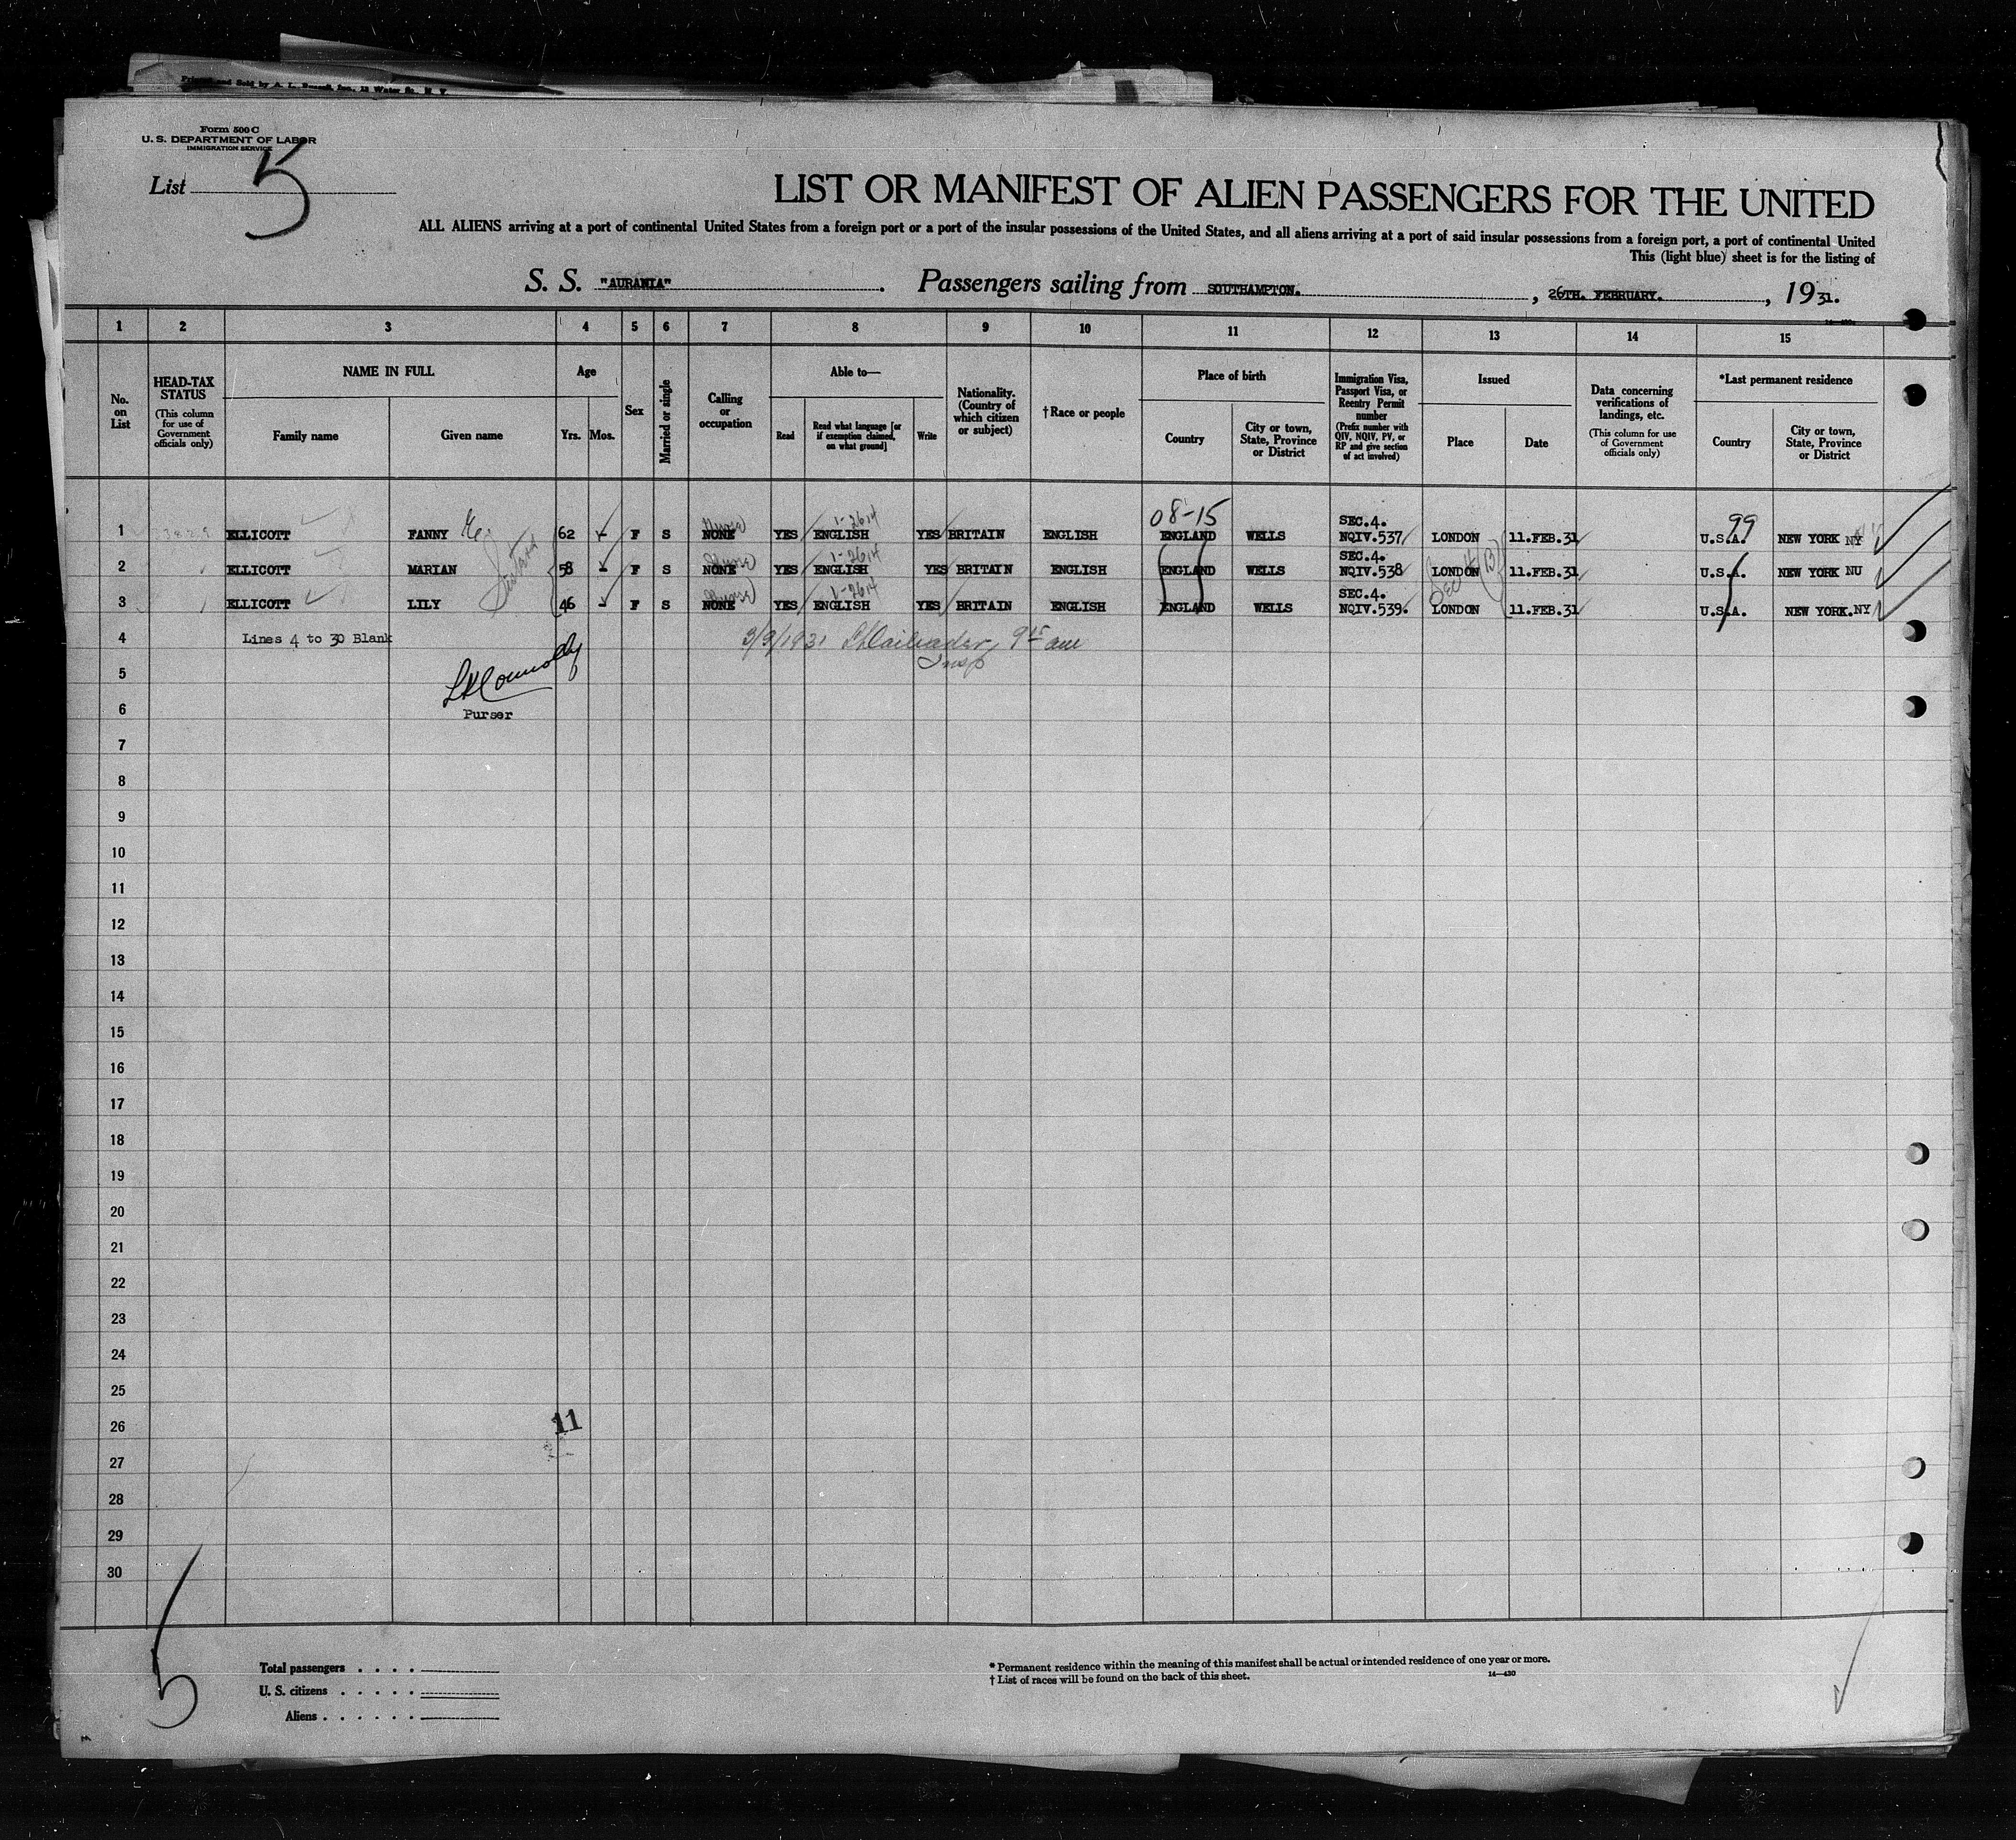 Printed and Sold by A. L.
Form 500 C
U. S. DEPARTMENT OF LABOR
IMMIGRATION SERVICE
List 5
LIST OR MANIFEST OF ALIEN PASSENGERS FOR THE UNITED
ALL ALIENS arriving at a port of continental United States from a foreign port or a port of the insular possessions of the United States, and all aliens arriving at a port of said insular possessions from a foreign port, a port of continental United
This (light blue) sheet is for the listing of
S. S. "AURANIA" . Passengers sailing from SOUTHAMPTON. , 26TH. FEBRUARY. , 1931.
1 2 3 4 5 6 7 8 9 10 11 12 13 14 15
No. on List
HEAD-TAX STATUS (This column for use of Government officials only)
NAME IN FULL
Family name
Given name
Age
Yrs. Mos.
Sex
Married or single
Calling or occupation
Able to—
Read
Read what language [or if exemption claimed, on what ground]
Write
Nationality. (Country of which citizen or subject)
†Race or people
Place of birth
Country
City or town, State, Province or District
Immigration Visa, Passport Visa, or Reentry Permit number (Prefix number with QIV, NQIV, PV, or RP and give section of act involved)
Issued
Place
Date
Data concerning verifications of landings, etc. (This column for use of Government officials only)
*Last permanent residence
Country
City or town, State, Province or District
08-15 99
1 ELLICOTT FANNY E. 62 - F S NONE Nurse YES ENGLISH 1-2614 YES BRITAIN ENGLISH ENGLAND WELLS SEC.4. NQIV.537 LONDON 11.FEB.31 U.S.A. NEW YORK NY
2 ELLICOTT MARIAN 58 - F S NONE Nurse YES ENGLISH 1-2614 YES BRITAIN ENGLISH ENGLAND WELLS SEC.4. NQIV.538 LONDON 11.FEB.31 U.S.A. NEW YORK NU
3 ELLICOTT LILY 46 - F S NONE Nurse YES ENGLISH 1-2614 YES BRITAIN ENGLISH ENGLAND WELLS SEC.4. NQIV.539. LONDON 11.FEB.31 U.S.A. NEW YORK.NY
4 Lines 4 to 30 Blank 3/9/1931 9 15 am
Insp
5 Connolly
6 Purser
7
8
9
10
11
12
13
14
15
16
17
18
19
20
21
22
23
24
25
26 11
27
28
29
30
5
Total passengers . . . .
U. S. citizens . . . . .
Aliens . . . . . .
* Permanent residence within the meaning of this manifest shall be actual or intended residence of one year or more.
† List of races will be found on the back of this sheet.
14—430